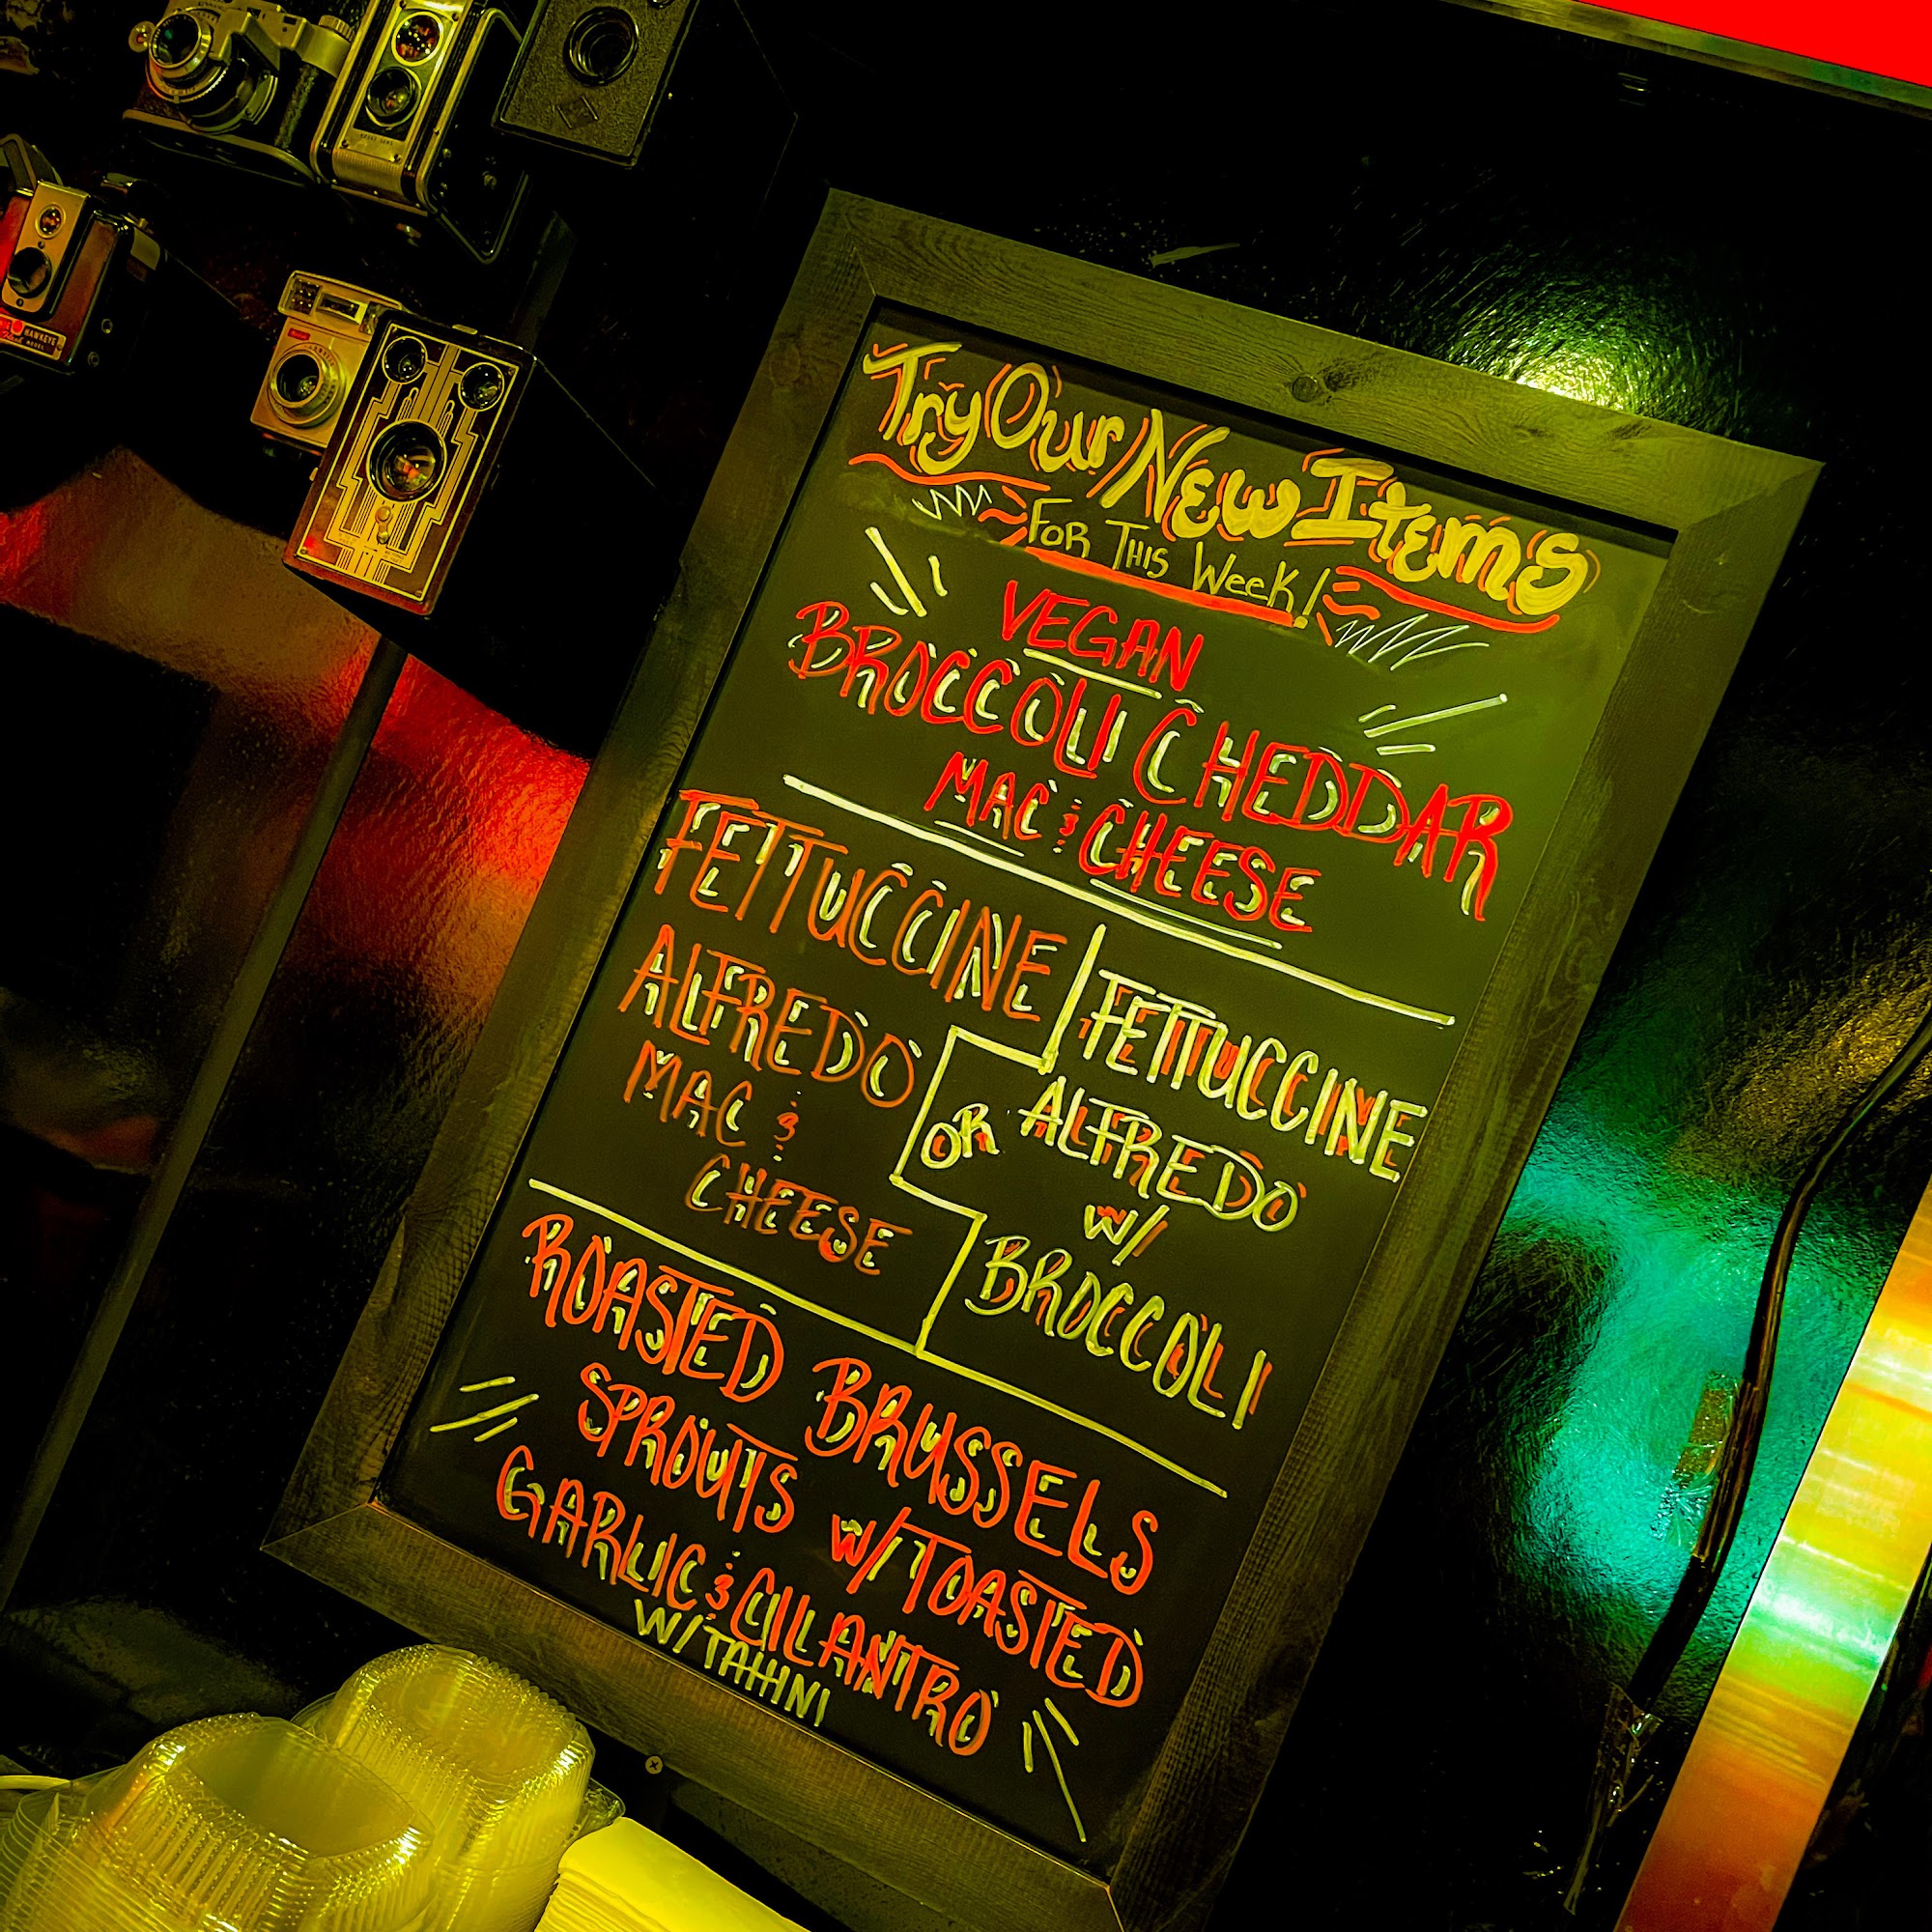 Try Our New Items
For This Week!
VEGAN
BROCCOLI CHEDDAR
MAC & CHEESE
FETTUCCINE
ALFREDO
MAC &
CHEESE
OR
FETTUCCINE
ALFREDO
w/
BROCCOLI
ROASTED BRUSSELS
SPROUTS w/TOASTED
GARLIC & CILANTRO
W/TAHINI
HAWKEYE